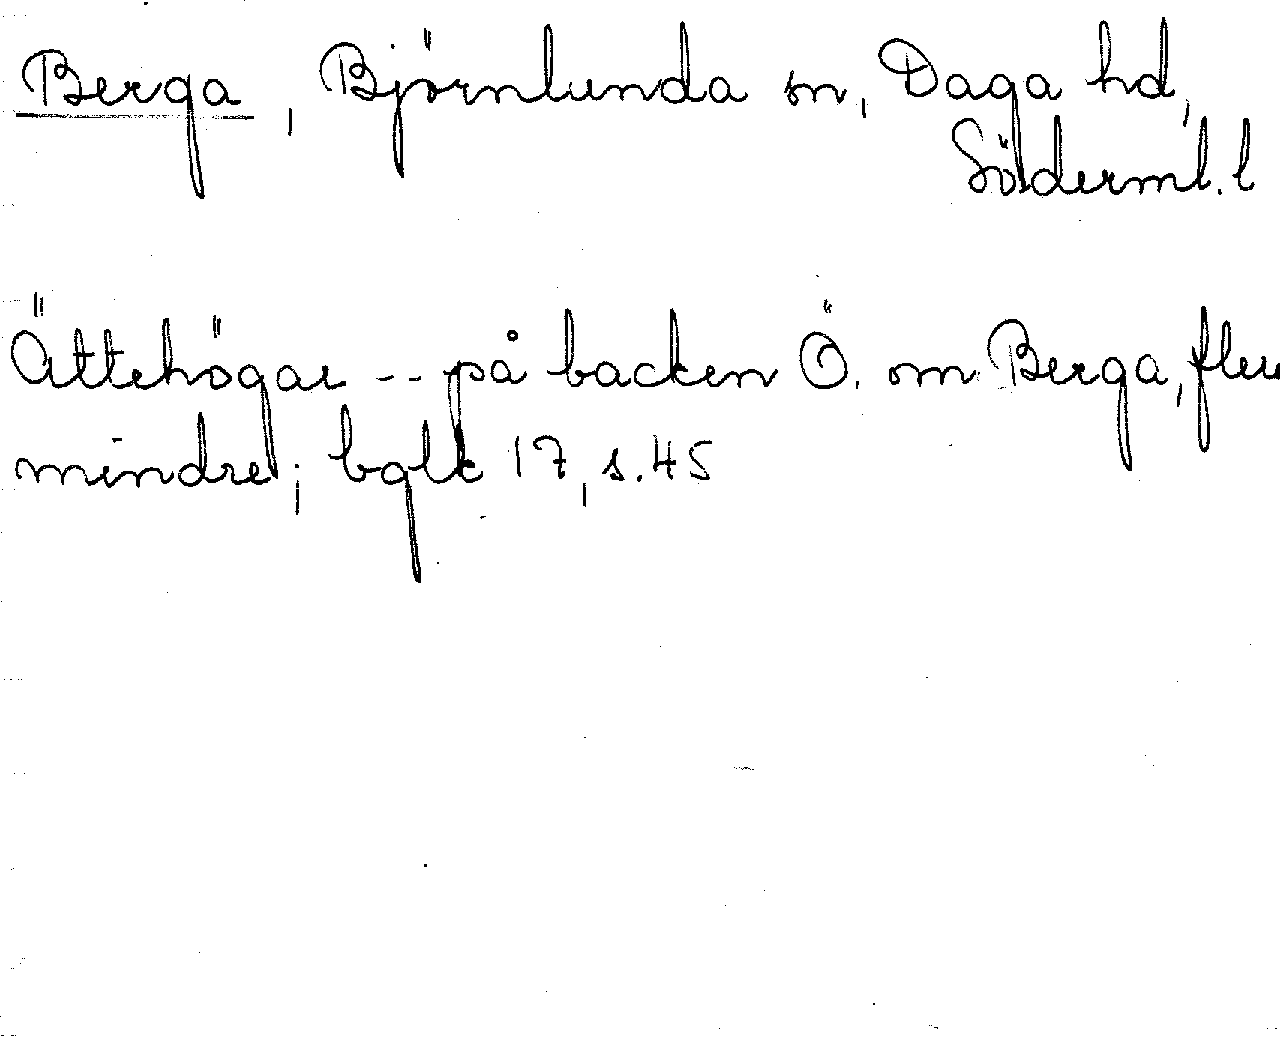 Berga, Björnlunda sn, Daga hd,
Söderml. l
Ättehögar -- på backen Ö. om Berga, flera
mindre; bglk 17, s. 45